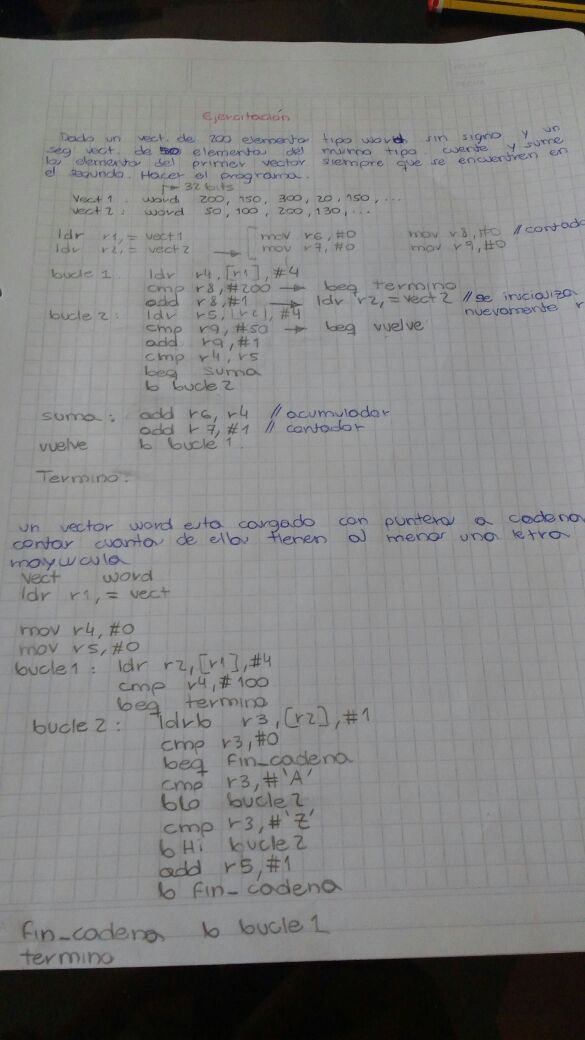 Ejercitación
Dado un vect. de 200 elementos tipo word sin signo y un
seg vect. de 50 elementos del mismo tipo cuente y sume
los elementos del primer vector siempre que se encuentren en
el segundo. Hacer el programa.
32 bits
vect 1: word 200, 150, 300, 20, 150, ...
vect 2: word 50, 100, 200, 130, ...
ldr r1, = vect1 mov r6, #0 mov r8, #0 // contado
ldr r2, = vect2 → mov r7, #0 mov r9, #0
bucle 1: ldr r4, [r1], #4
cmp r8, #200 → beq termino
add r8, #1 → ldr r2, = vect2 // se inicializa
nuevamente r
bucle 2: ldr r5, [r2], #4
cmp r9, #50 → beq vuelve
add r9, #1
cmp r4, r5
beq suma
b bucle 2
suma: add r6, r4 // acumulador
add r7, #1 // contador
vuelve b bucle 1.
Termino:
un vector word esta cargado con punteros a cadena
contar cuantas de ellas tienen al menos una letra
mayuscula
vect word
ldr r1, = vect
mov r4, #0
mov r5, #0
bucle1: ldr r2, [r1], #4
cmp r4, #100
beq termino
bucle 2: ldrb r3, [r2], #1
cmp r3, #0
beq fin_cadena
cmp r3, #'A'
blo bucle 2
cmp r3, #'Z'
bHi bucle 2
add r5, #1
b fin_cadena
fin_cadena b bucle 1
termino